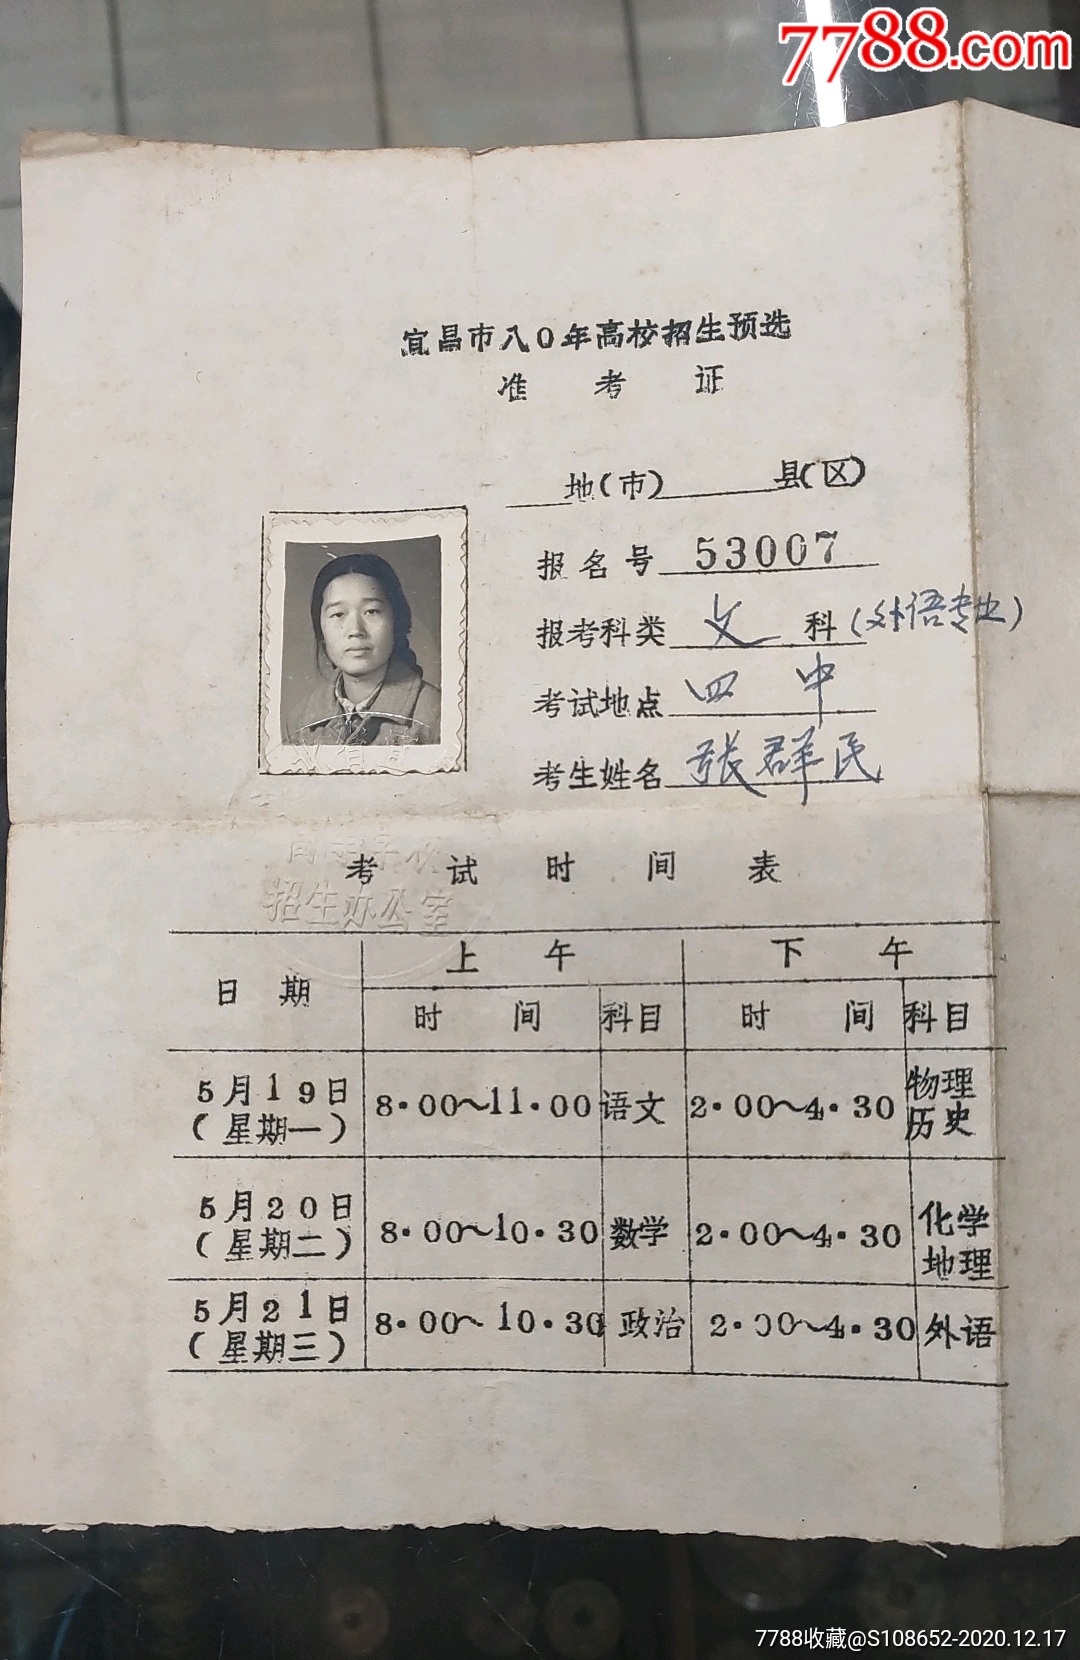 7788.com
宜昌市八0年高校招生预选
准考证
地(市) 县(区)
报名号 53007
报考科类 文 科 (外语专业)
考试地点 四中
考生姓名 张群民
考试时间表
招生办公室
日期 上午 下午
时间 科目 时间 科目
5月19日 (星期一) 8·00~11·00 语文 2·00~4·30 物理 历史
5月20日 (星期二) 8·00~10·30 数学 2·00~4·30 化学 地理
5月21日 (星期三) 8·00~10·30 政治 2·00~4·30 外语
7788收藏@S108652-2020.12.17